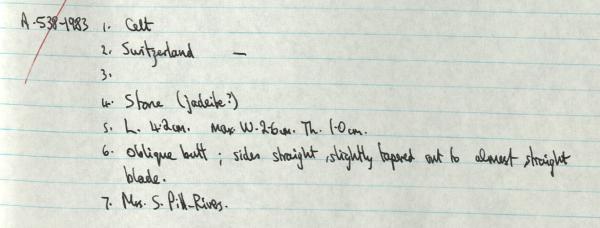 A.538-1983 1. Celt
2. Switzerland —
3.
4. Stone (jadeite?)
5. L. 4.2cm. max. W. 2.6cm. Th. 1.0cm.
6. Oblique butt ; sides straight, slightly tapered out to almost straight
blade.
7. Mrs. S. Pitt-Rivers.